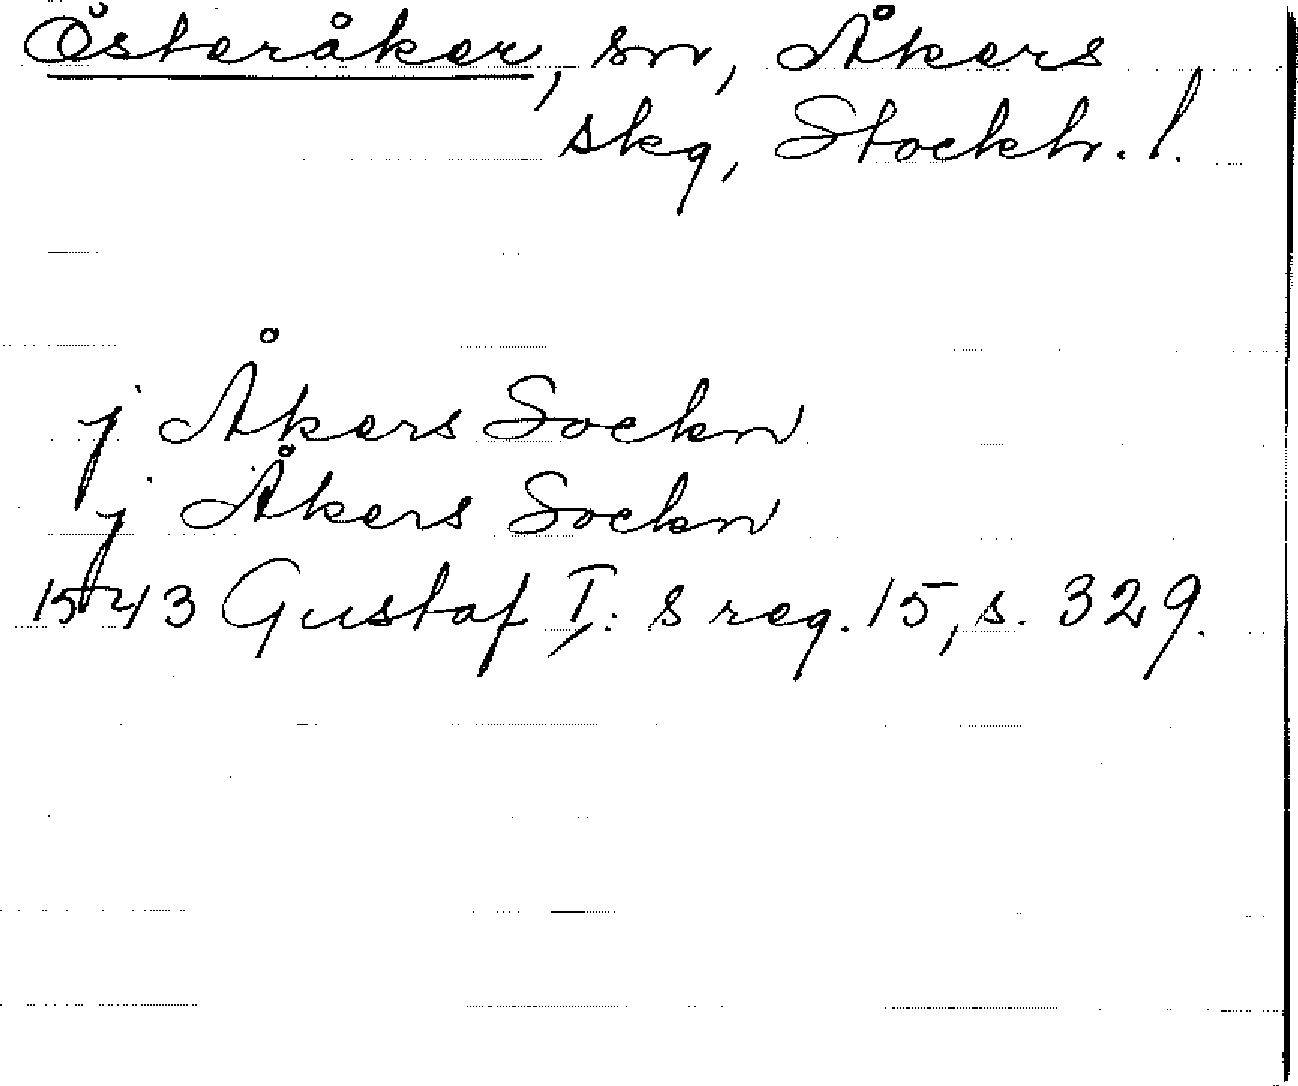 Österåker, sn, Åkers
skg, Stockh. l.
j Åkers Sockn
j Åkers Sockn
1543 Gustaf I:s reg. 15, s. 329.